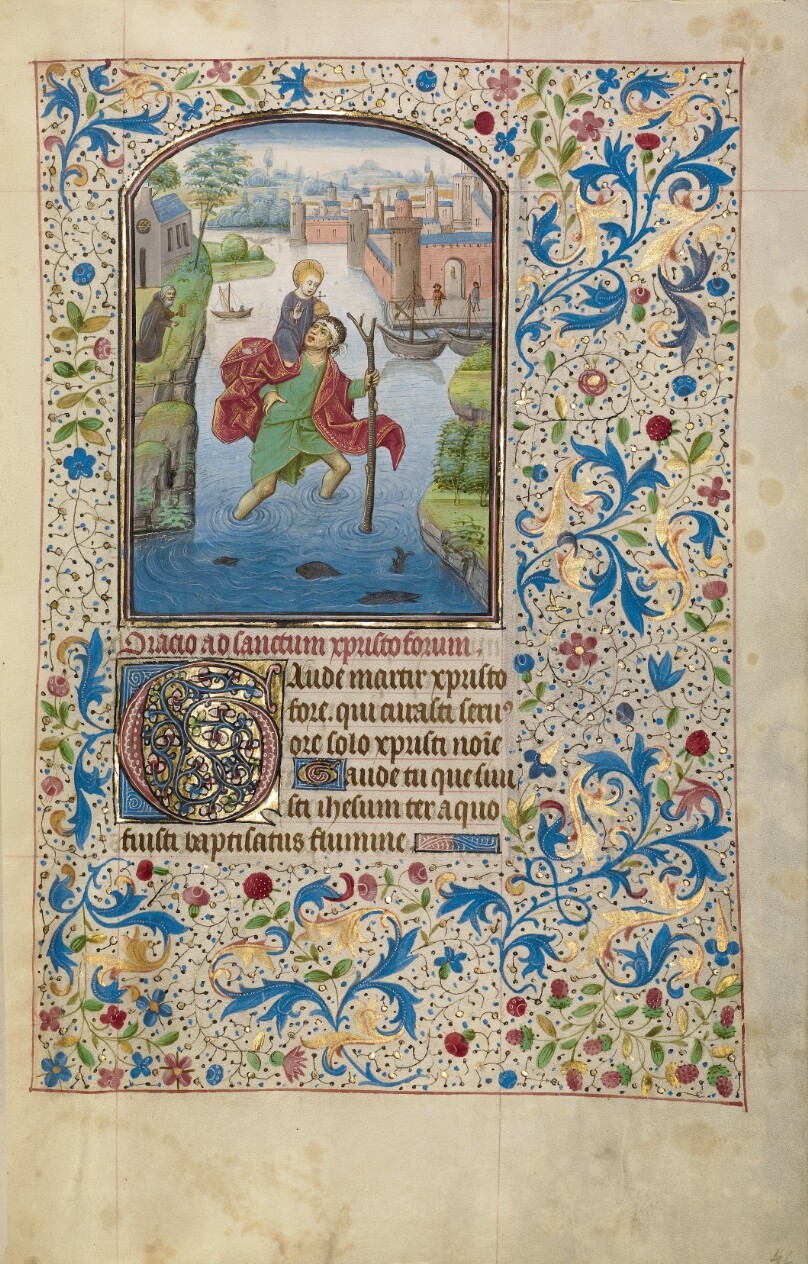 Oracio ad sanctum xpristoforum.
Gaude martir xpristo
fore. qui curasti seruiꝰ
ore solo xpristi noīe
Gaude tu que suu
sti ihesum ter a quo
fuisti baptisatus flumine